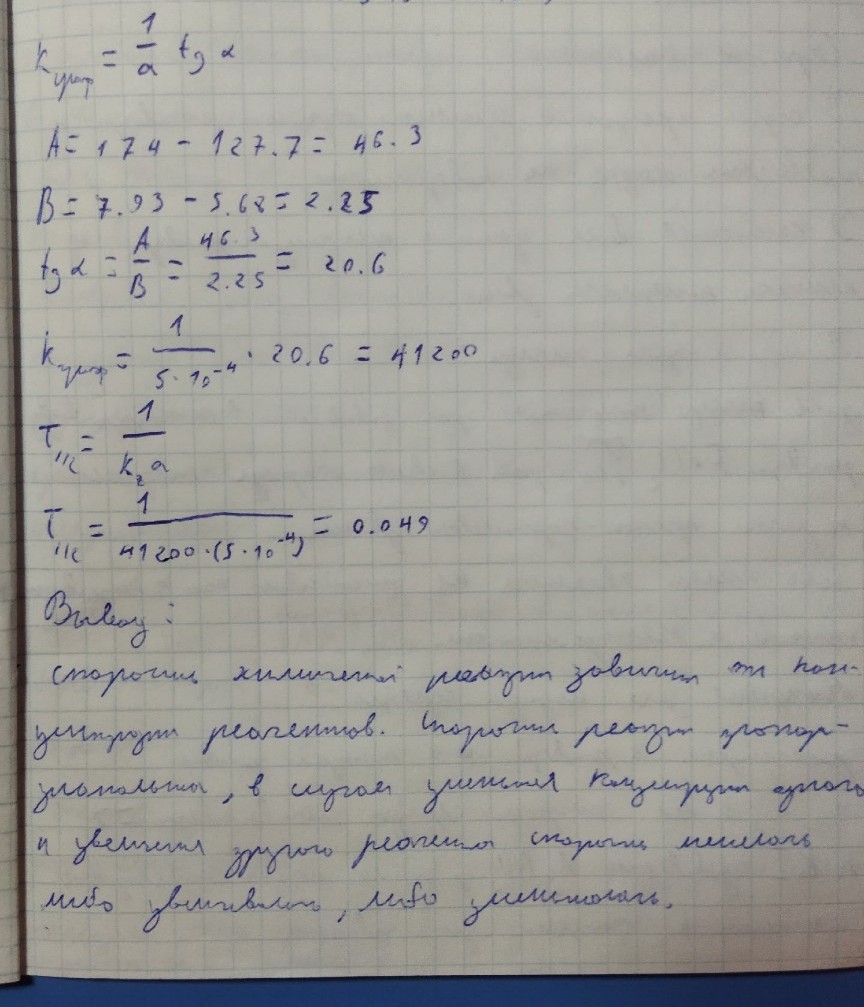 k граф = 1/a tg α
A = 174 - 127.7 = 46.3
B = 7.93 - 5.68 = 2.25
tg α = A/B = 46.3/2.25 = 20.6
k граф = 1/(5·10⁻⁴) · 20.6 = 41200
T 1/2 = 1/(k₂ a)
T 1/2 = 1/(41200·(5·10⁻⁴)) = 0.049
Вывод:
скорость химической реакции зависит от кон-
центрации реагентов. Скорость реакции пропор-
циональна, в случае концентрации одного
и увеличения другого реагента скорость менялась
либо увеличивалась, либо уменьшалась.